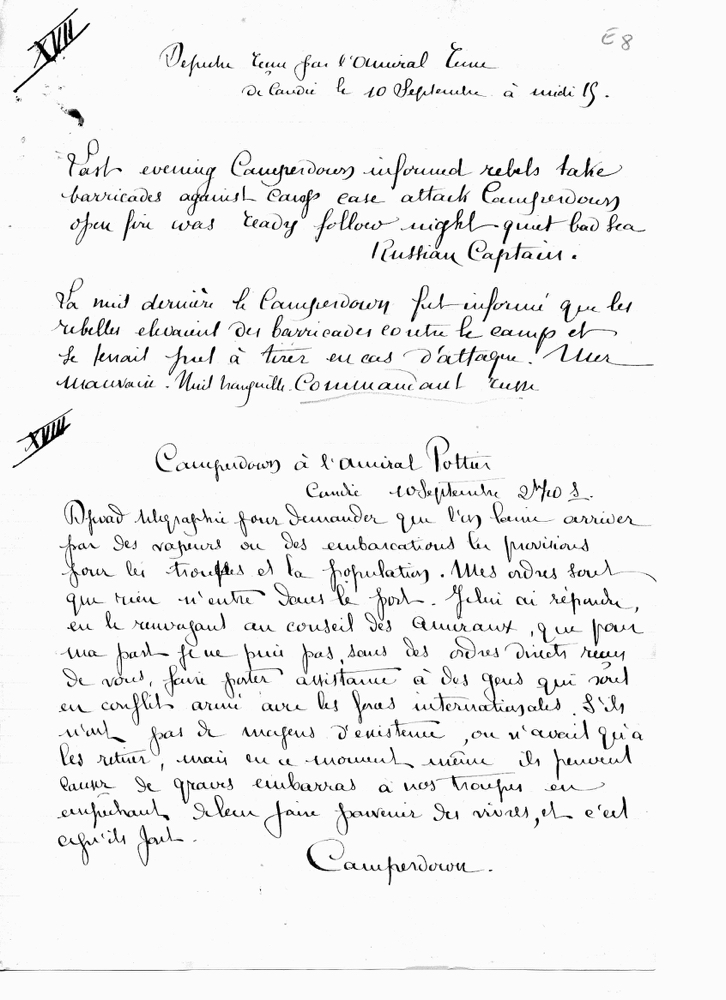 XVII
E 8
Depeche reçue par l'Amiral Russe
de Candie le 10 Septembre à midi 15.
Last evening Camperdown informed rebels take
barricades against camp case attack Camperdown
open fire was ready follow night quiet bad sea
Russian Captain.
La nuit dernière le Camperdown fut informé que les
rebelles élevaient des barricades contre le camp et
se tenait prêt à tirer en cas d'attaque. Mer
mauvaise. Nuit tranquille. Commandant russe
XVIII
Camperdown à l'Amiral Pottier
Candie 10 Septembre 2h10 S.
Djevad télégraphie pour demander que l'on laisse arriver
par des vapeurs ou des embarcations les provisions
pour les troupes et la population. Mes ordres sont
que rien n'entre dans le port. Je lui ai répondu,
en le renvoyant au conseil des Amiraux, que pour
ma part je ne puis pas, sans des ordres directs reçus
de vous, faire porter assistance à des gens qui sont
en conflit armé avec les forces internationales. S'ils
n'ont pas de moyens d'existence, on n'avait qu'à
les retirer, mais en ce moment même ils peuvent
causer de graves embarras à nos troupes en
empêchant de leur faire parvenir des vivres, et c'est
ce qu'ils font.
Camperdown.